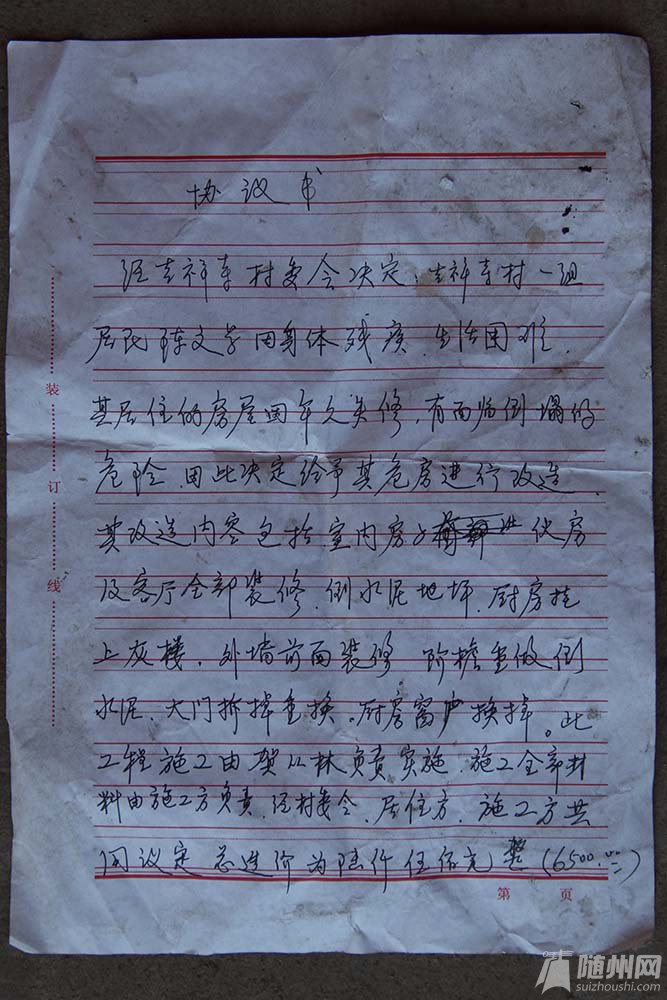 协议书
经吉祥寺村委会决定：吉祥寺村一组
居民陈文学因身体残疾.生活困难.
其居住的房屋因年久失修，有面临倒塌的
危险.因此决定给予其危房进行改造.
其改造内容包括室内房子 伙房
及客厅全部装修.倒水泥地坪.厨房
上灰楼，外墙前面装修 阶檐重做倒
水泥、大门拆掉重换。厨房窗户换掉。此
工程施工由贺从林负责实施.施工全部材
料由施工方负责.经村委会、居住方、施工方共
同议定总造价为陆仟伍佰元整(6500.00)
装
订
线
第 页
随州网
suizhoushi.com